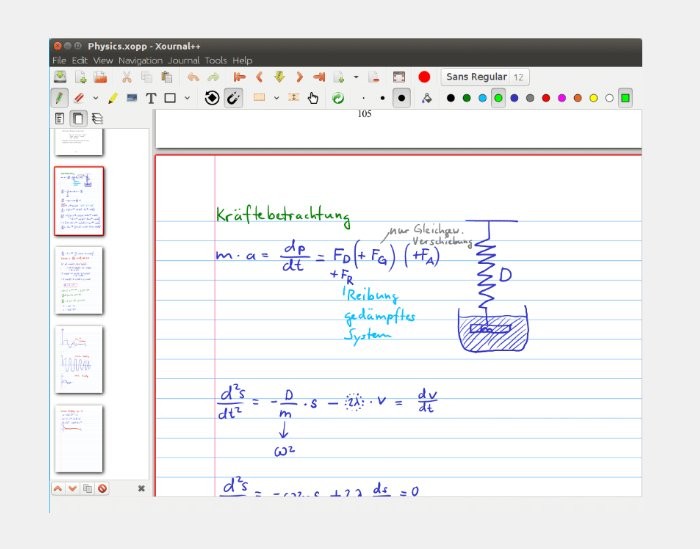 Physics.xopp - Xournal++
File Edit View Navigation Journal Tools Help
Sans Regular 12
T
105
Kräftebetrachtung
nur Gleichgew.
Verschiebung
m · a = dp/dt = F_D (+ F_G) (+F_A)
+ F_R
Reibung
gedämpftes
System
D
d²s/dt² = - D/m · s - 2λ · v = dv/dt
↓
ω²
d²s = -ω² · s + 2λ ds = 0